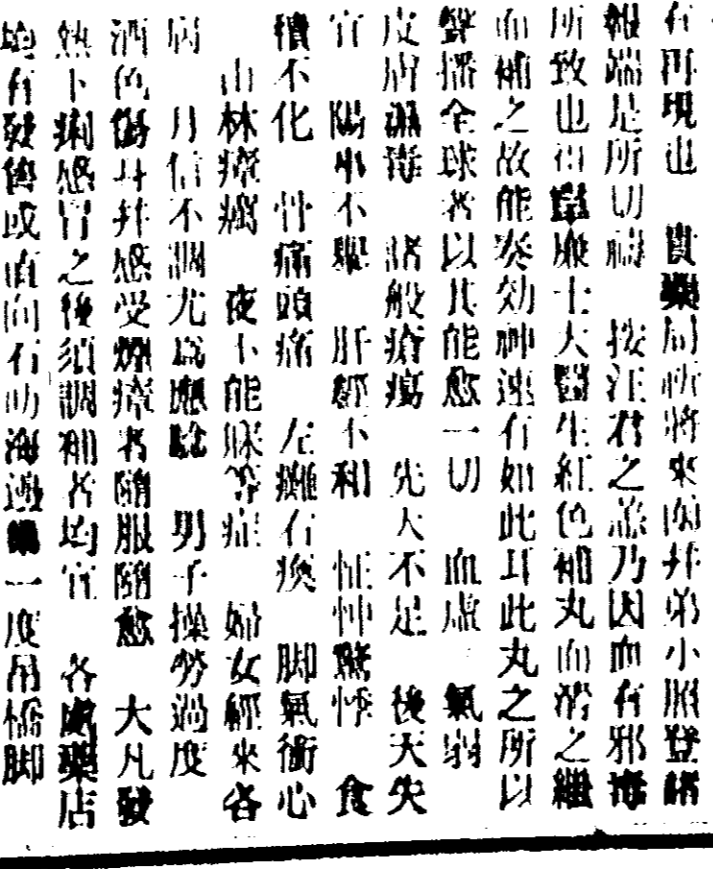 有再現也 貴藥局恢將來函并弟小照登諸
報端是所切禱 按汪君之恙乃因血有邪毒
所致也 廉士大醫生紅色補丸血滯之繼
血補之故能奏効神速有如此耳此丸之所以
聲播全球者以其能愈一切 血虛 氣弱
皮膚濕毒 諸般瘡瘍 先天不足 後天失
宜 陽事不舉 肝經不和 怔忡驚悸 食
積不化 骨痛頭痛 左癱右瘓 脚氣衝心
山林瘴癘 夜不能寐等症 婦女經來各
病 月信不調尤為應驗 男子操勞過度
酒色傷身并感受烟瘴者隨服隨愈 大凡發
熱下痢感冒之後須調補者均宜 各處藥店
均有發售或直向 海 一度吊橋脚